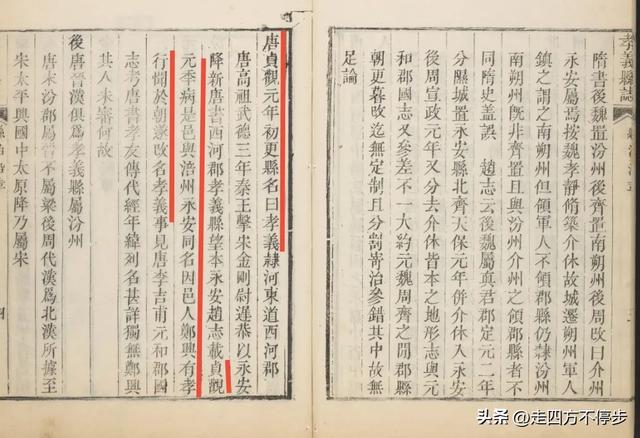 孝義縣誌
隋書後魏置汾州後齊置南朔州後周改曰介州
永安屬焉按魏孝靜脩築介休故城遷朔州軍人
鎮之謂之南朔州但領軍人不領郡縣仍隸汾州
南朔州旣非齊置且與汾州介州之領郡縣者不
同隋史蓋誤　趙志云後魏屬真君郡定元二年
分隰城置永安北齊天保元年併介休入永安
後周宣政元年又分介休皆本之地形志與元
和郡國志又參差不一大約元魏周齊之閒郡縣
朝更暮改迄無定制且分割寄治參錯其中故無
足論
唐貞觀元年初更縣名曰孝義隸河東道西河郡
唐高祖武德三年秦王擊朱金剛尉遲恭以永安
降新唐書西河郡孝義縣望本永安趙志載貞觀
元季病是邑與涪州永安同名因邑人鄭興有孝
行聞於朝遂改名孝義事見唐李吉甫元和郡國
志考唐書孝友傳代經年緯列名甚詳獨無鄭興
其人未審何故
後唐晉漢俱爲孝義縣屬汾州
唐末汾郡屬晉不屬梁後周代漢爲北漢所據至
宋太平興國中太原降乃屬宋
头条 @走四方不停步